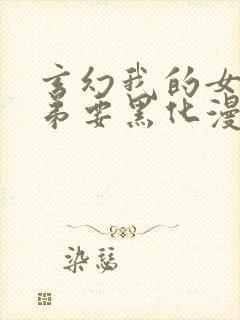 玄幻我的女
弟要黑化漫
染瑟